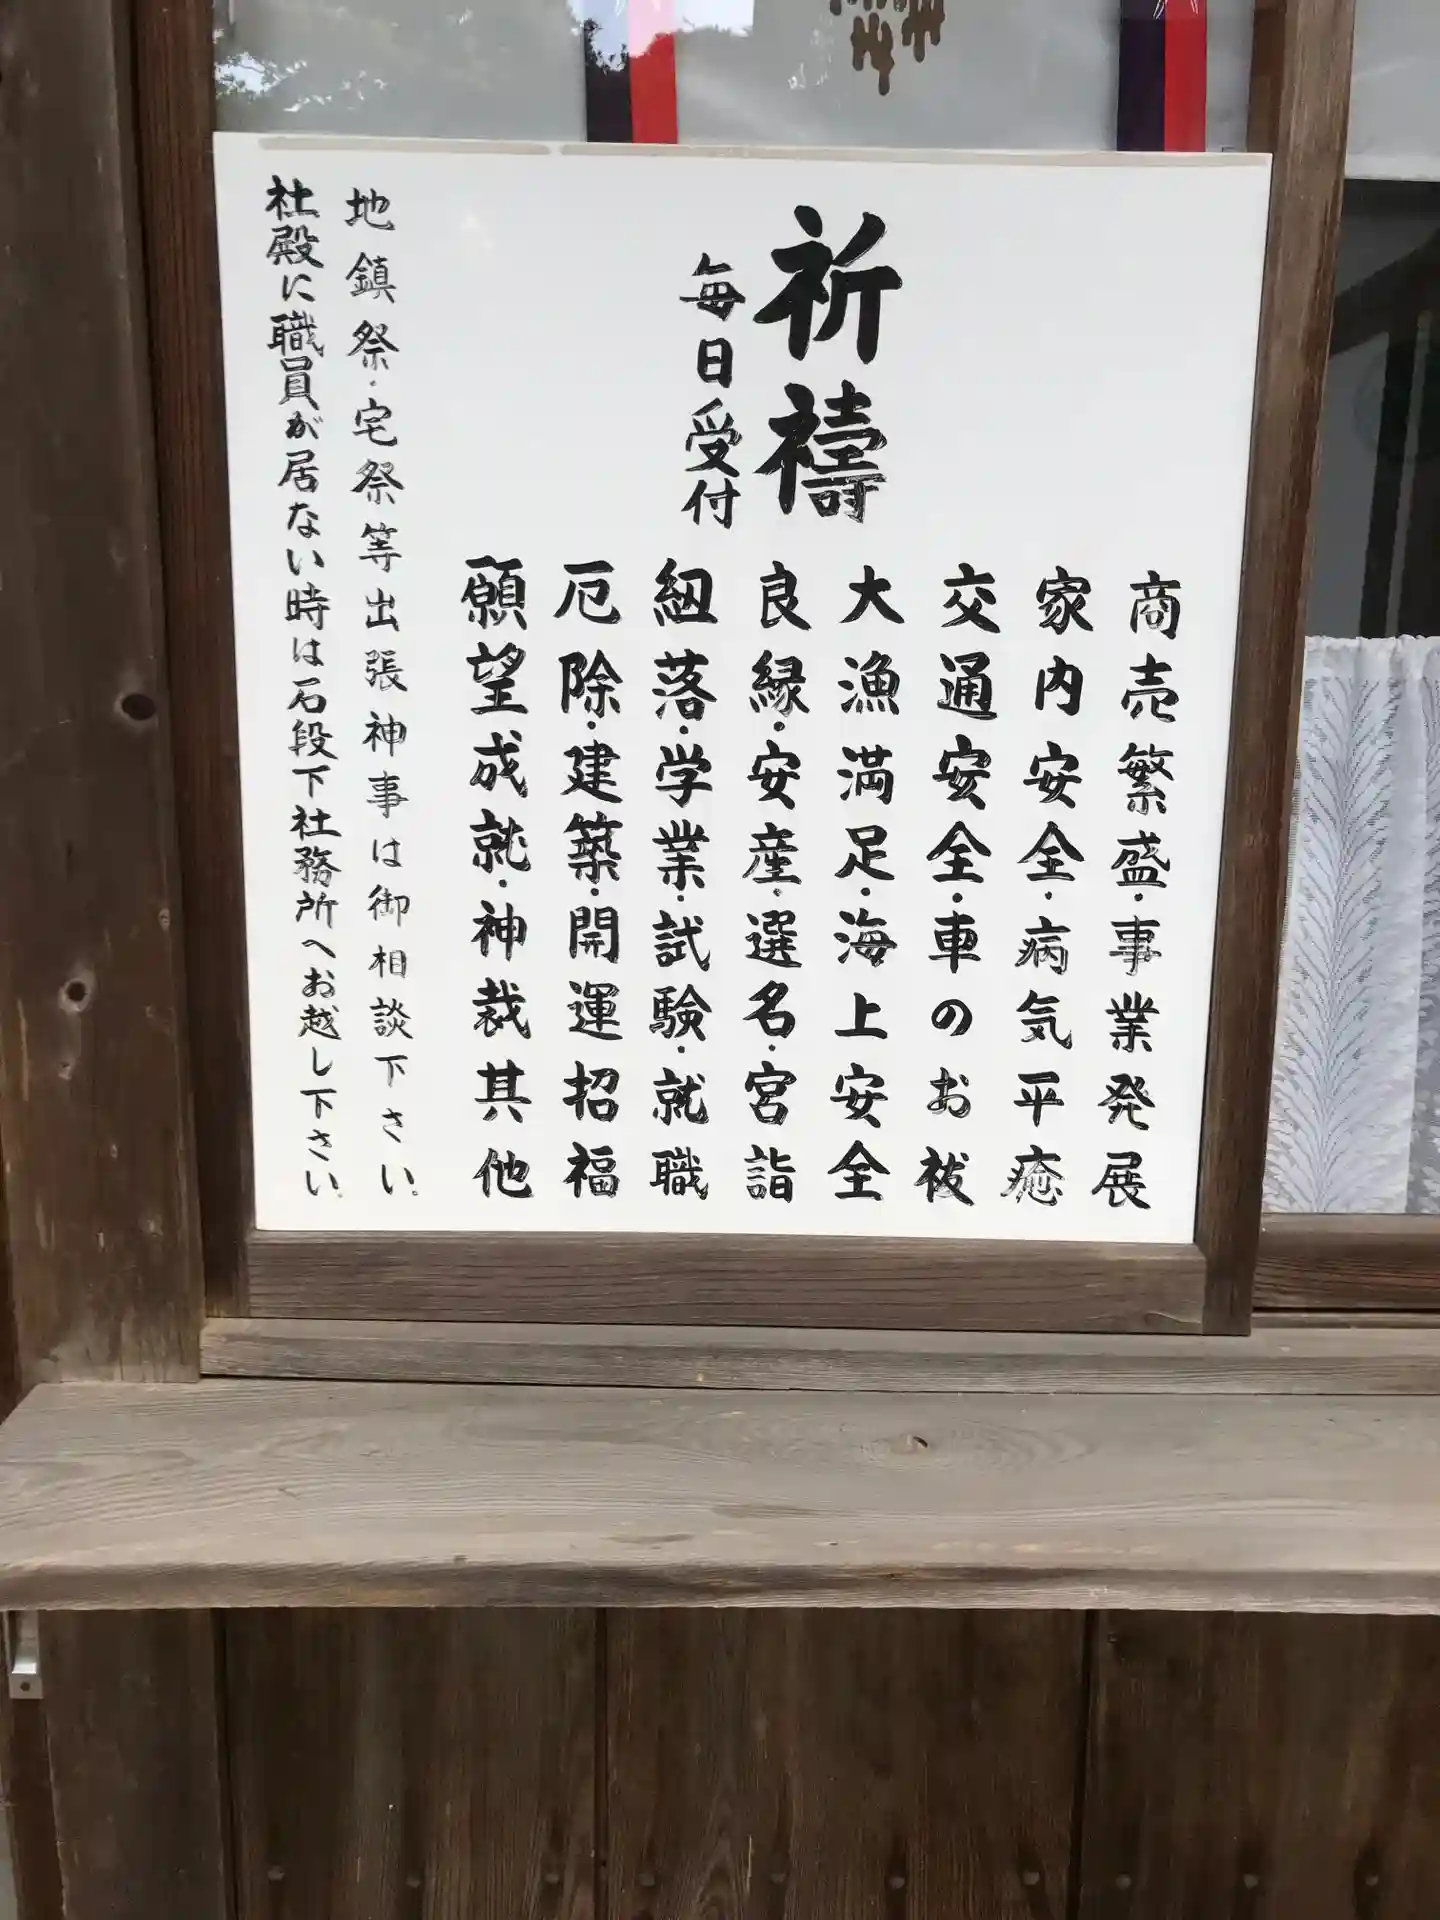 祈禱
毎日受付
商売繁盛・事業発展
家内安全・病気平癒
交通安全・車のお祓
大漁満足・海上安全
良縁・安産・選名・宮詣
紐落・学業・試験・就職
厄除・建築・開運招福
願望成就・神裁其他
地鎮祭・宅祭等出張神事は御相談下さい。
社殿に職員が居ない時は石段下社務所へお越し下さい。